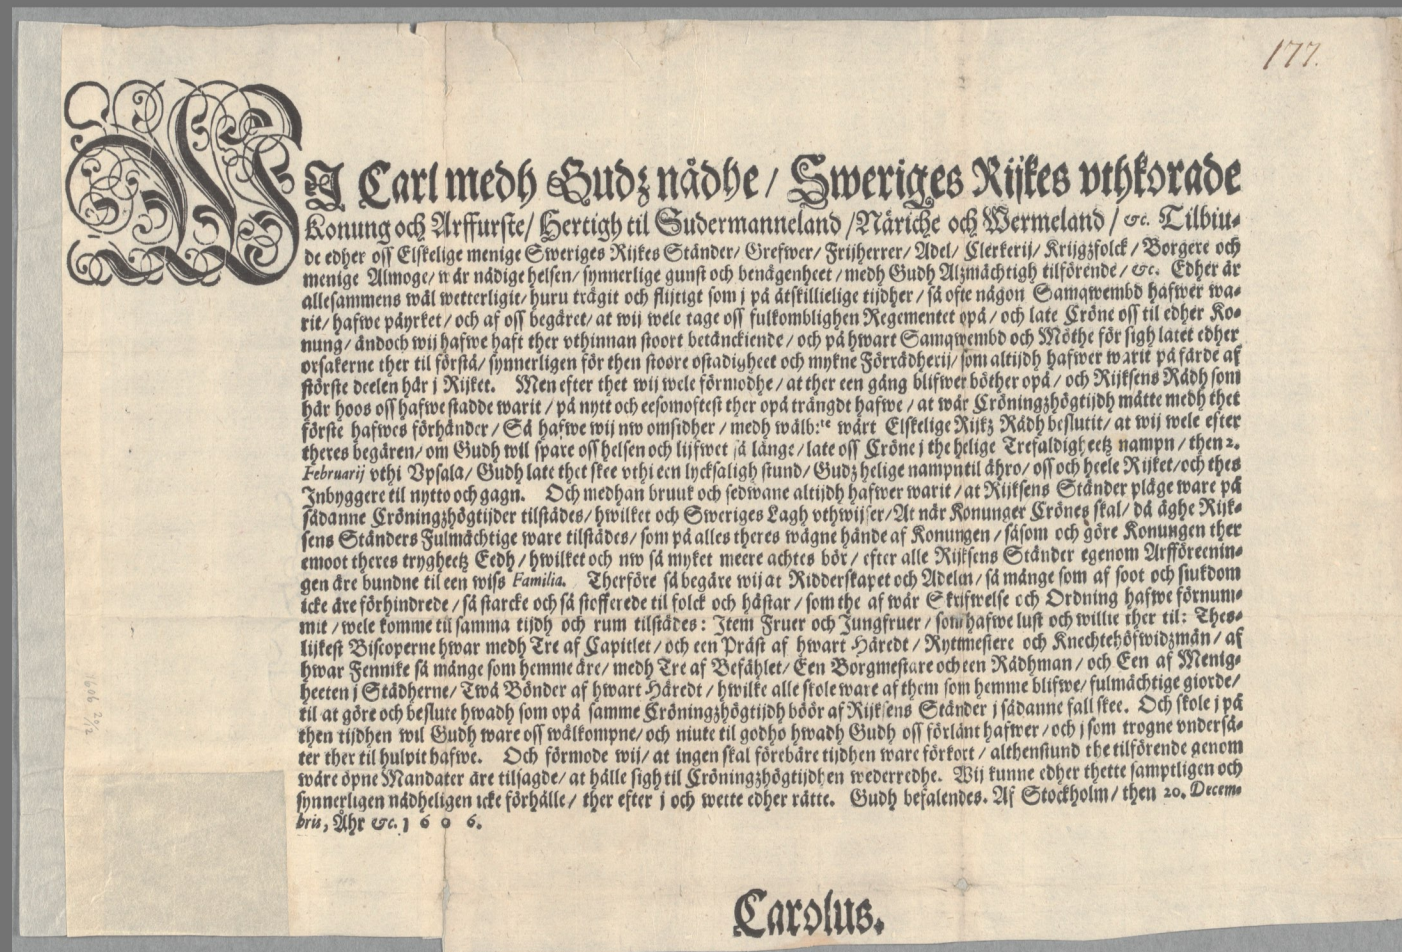 177.
WJ Carl medh Gudz nådhe / Sweriges Rijkes vthkorade
Konung och Arffurste / Hertigh til Sudermanneland / Näriche och Wermeland / &c. Tilbiu-
de edher oss Elskelige menige Sweriges Rijkes Ständer / Grefwer / Frijherrer / Adel / Clerkerij / Krijgzfolck / Borgere och
menige Almoge / wår nådige helsen / synnerlige gunst och benägenheet / medh Gudh Alzmächtigh tilförende / &c. Edher är
allesammens wäl wetterligit / huru trägit och flijtigt som j på åtskillielige tijdher / så ofte någon Samqwembd hafwer wa-
rit / hafwe påyrket / och af oss begäret / at wij wele tage oss fulkomblighen Regementet opå / och late Cröne oss til edher Ko-
nung / ändoch wij hafwe haft ther vthinnan stoort betänckiende / och på hwart Samqwembd och Möthe för sigh latet edher
orsakerne ther til förstå / synnerligen för then stoore ostadigheet och mykne Förrädherij / som altijdh hafwer warit på färde af
störste deelen här j Rijket. Men efter thet wij wele förmodhe / at ther een gång blifwer böther opå / och Rijksens Rådh som
här hoos oss hafwe stadde warit / på nytt och eesomoftest ther opå trängdt hafwe / at wår Cröningzhögtijdh måtte medh thet
förste hafwes förhänder / Så hafwe wij nw omsidher / medh wälb:te wårt Elskelige Rijkz Rådh beslutit / at wij wele efter
theres begären / om Gudh wil spare oss helsen och lijfwet så länge / late oss Cröne j the helige Trefaldigheetz nampn / then 2.
Februarij vthi Vpsala / Gudh late thet skee vthi een lycksaligh stund / Gudz helige nampn til ähro / oss och heele Rijket / och thes
Inbyggere til nytto och gagn. Och medhan bruuk och sedwane altijdh hafwer warit / at Rijksens Ständer pläge ware på
sådanne Cröningzhögtijder tilstädes / hwilket och Sweriges Lagh vthwijser / At når Konunger Crönes skal / då äghe Rijk-
sens Ständers Fulmächtige ware tilstädes / som på alles theres wägne hände af Konungen / såsom och göre Konungen ther
emoot theres trygheetz Eedh / hwilket och nw så myket meere achtes bör / efter alle Rijksens Ständer egenom Arfföreenin-
gen äre bundne til een wiss Familia. Therföre så begäre wij at Ridderskapet och Adelen / så månge som af soot och siukdom
icke äre förhindrede / så starcke och så stofferede til folck och hästar / som the af wår Skrifwelse och Ordning hafwe förnum-
mit / wele komme til samma tijdh och rum tilstädes : Item Fruer och Jungfruer / som hafwe lust och willie ther til : Thes-
lijkest Biscoperne hwar medh Tre af Capitlet / och een Präst af hwart Häredt / Ryttmestere och Knechtehöfwidzmän / af
hwar Fennike så månge som hemme äre / medh Tre af Befählet / Een Borgmestare och een Rådhman / och Een af Menig-
heeten j Städherne / Twå Bönder af hwart Häredt / hwilke alle skole ware af them som hemme blifwe / fulmächtige giorde /
til at göre och beslute hwadh som opå samme Cröningzhögtijdh böör af Rijksens Ständer j sådanne fall skee. Och skole j på
then tijdhen wil Gudh ware oss wälkompne / och niute til godho hwadh Gudh oss förlänt hafwer / och j som trogne vnderså-
ter ther til hulpit hafwe. Och förmode wij / at ingen skal förebäre tijdhen ware förkort / althenstund the tilförende genom
wåre öpne Mandater äre tilsagde / at hålle sigh til Cröningzhögtijdhen wederredhe. Wij kunne edher thette samptligen och
synnerligen nådheligen icke förhålle / ther efter j och wette edher rätte. Gudh befalendes. Af Stockholm / then 20. Decem-
bris, Åhr &c. 1 6 0 6.
Carolus.
1606 20/12